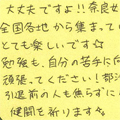 大丈夫ですよ!!奈良女
全国各地から集まって
とても楽しいです☆
勉強も、自分の苦手に向
頑張ってください!都
引退前の人も焦らずに
健闘を祈ります。